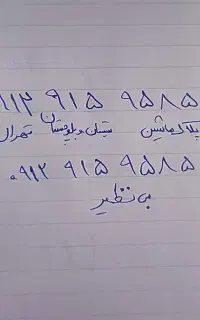 ۹۱۲ ۹۱۵ ۹۵۸۵
پلاک ماشین سیستان و بلوچستان تهران
۰۹۱۲ ۹۱۵ ۹۵۸۵
بی نظیر